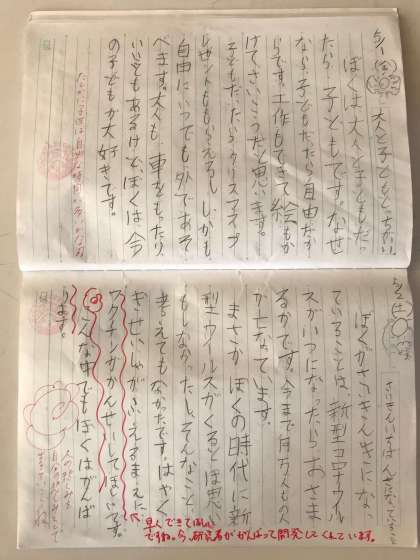 大人と子どもどっちがいい
ぼくは大人と子どもだっ
たら子どもです。なぜ
なら子どもだったら自由だか
らです。工作もできて絵もか
けてさいこうだと思います。
子どもだったらクリスマスプ
レゼントももらえるし、しかも
自由にいつでも外であそ
べます。大人も車をもったり、
いいこともあるけど、ぼくは今
の子どもが大好きです。
たしかに子どもは自由な時間が多いかな
ぼくがさいきん気になっ
ていることは、新型コロナウイル
スがいつになったらおさま
るかです。今まで百万人もの人
が亡なっています。
まさかぼくの時代に新
型ウイルスがくるとは思い
もしなかったし、そんなこと
考えてもなかったです。はやく
ぎせいしゃがふえるまえに、
ワクチンがかんせいしてほしいです。
こんな中でもぼくはがんば
ります。
早くできてほしい
ですね。今、研究者ががんばって開発してくれています。